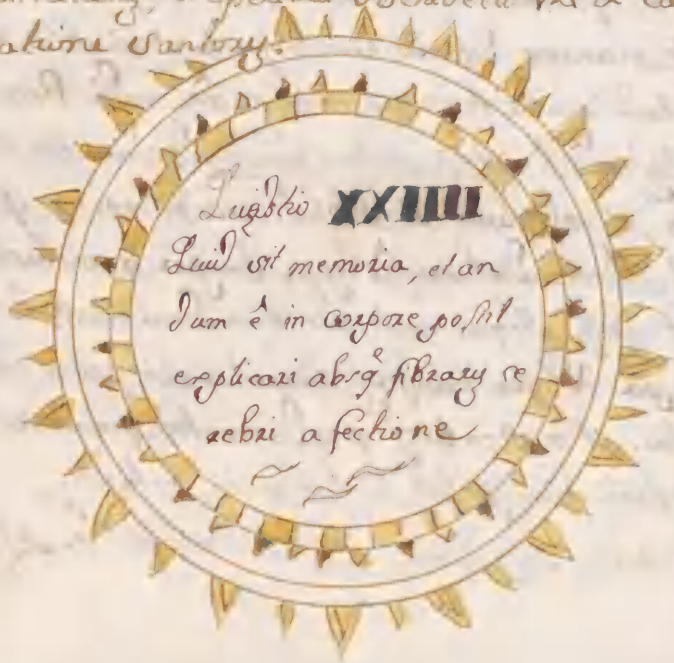 atione
Quæstio XXIIII
Quid sit memoria, et an
dum ê in corpore possit
explicari absq̃ fibrarũ ce
rebri afectione